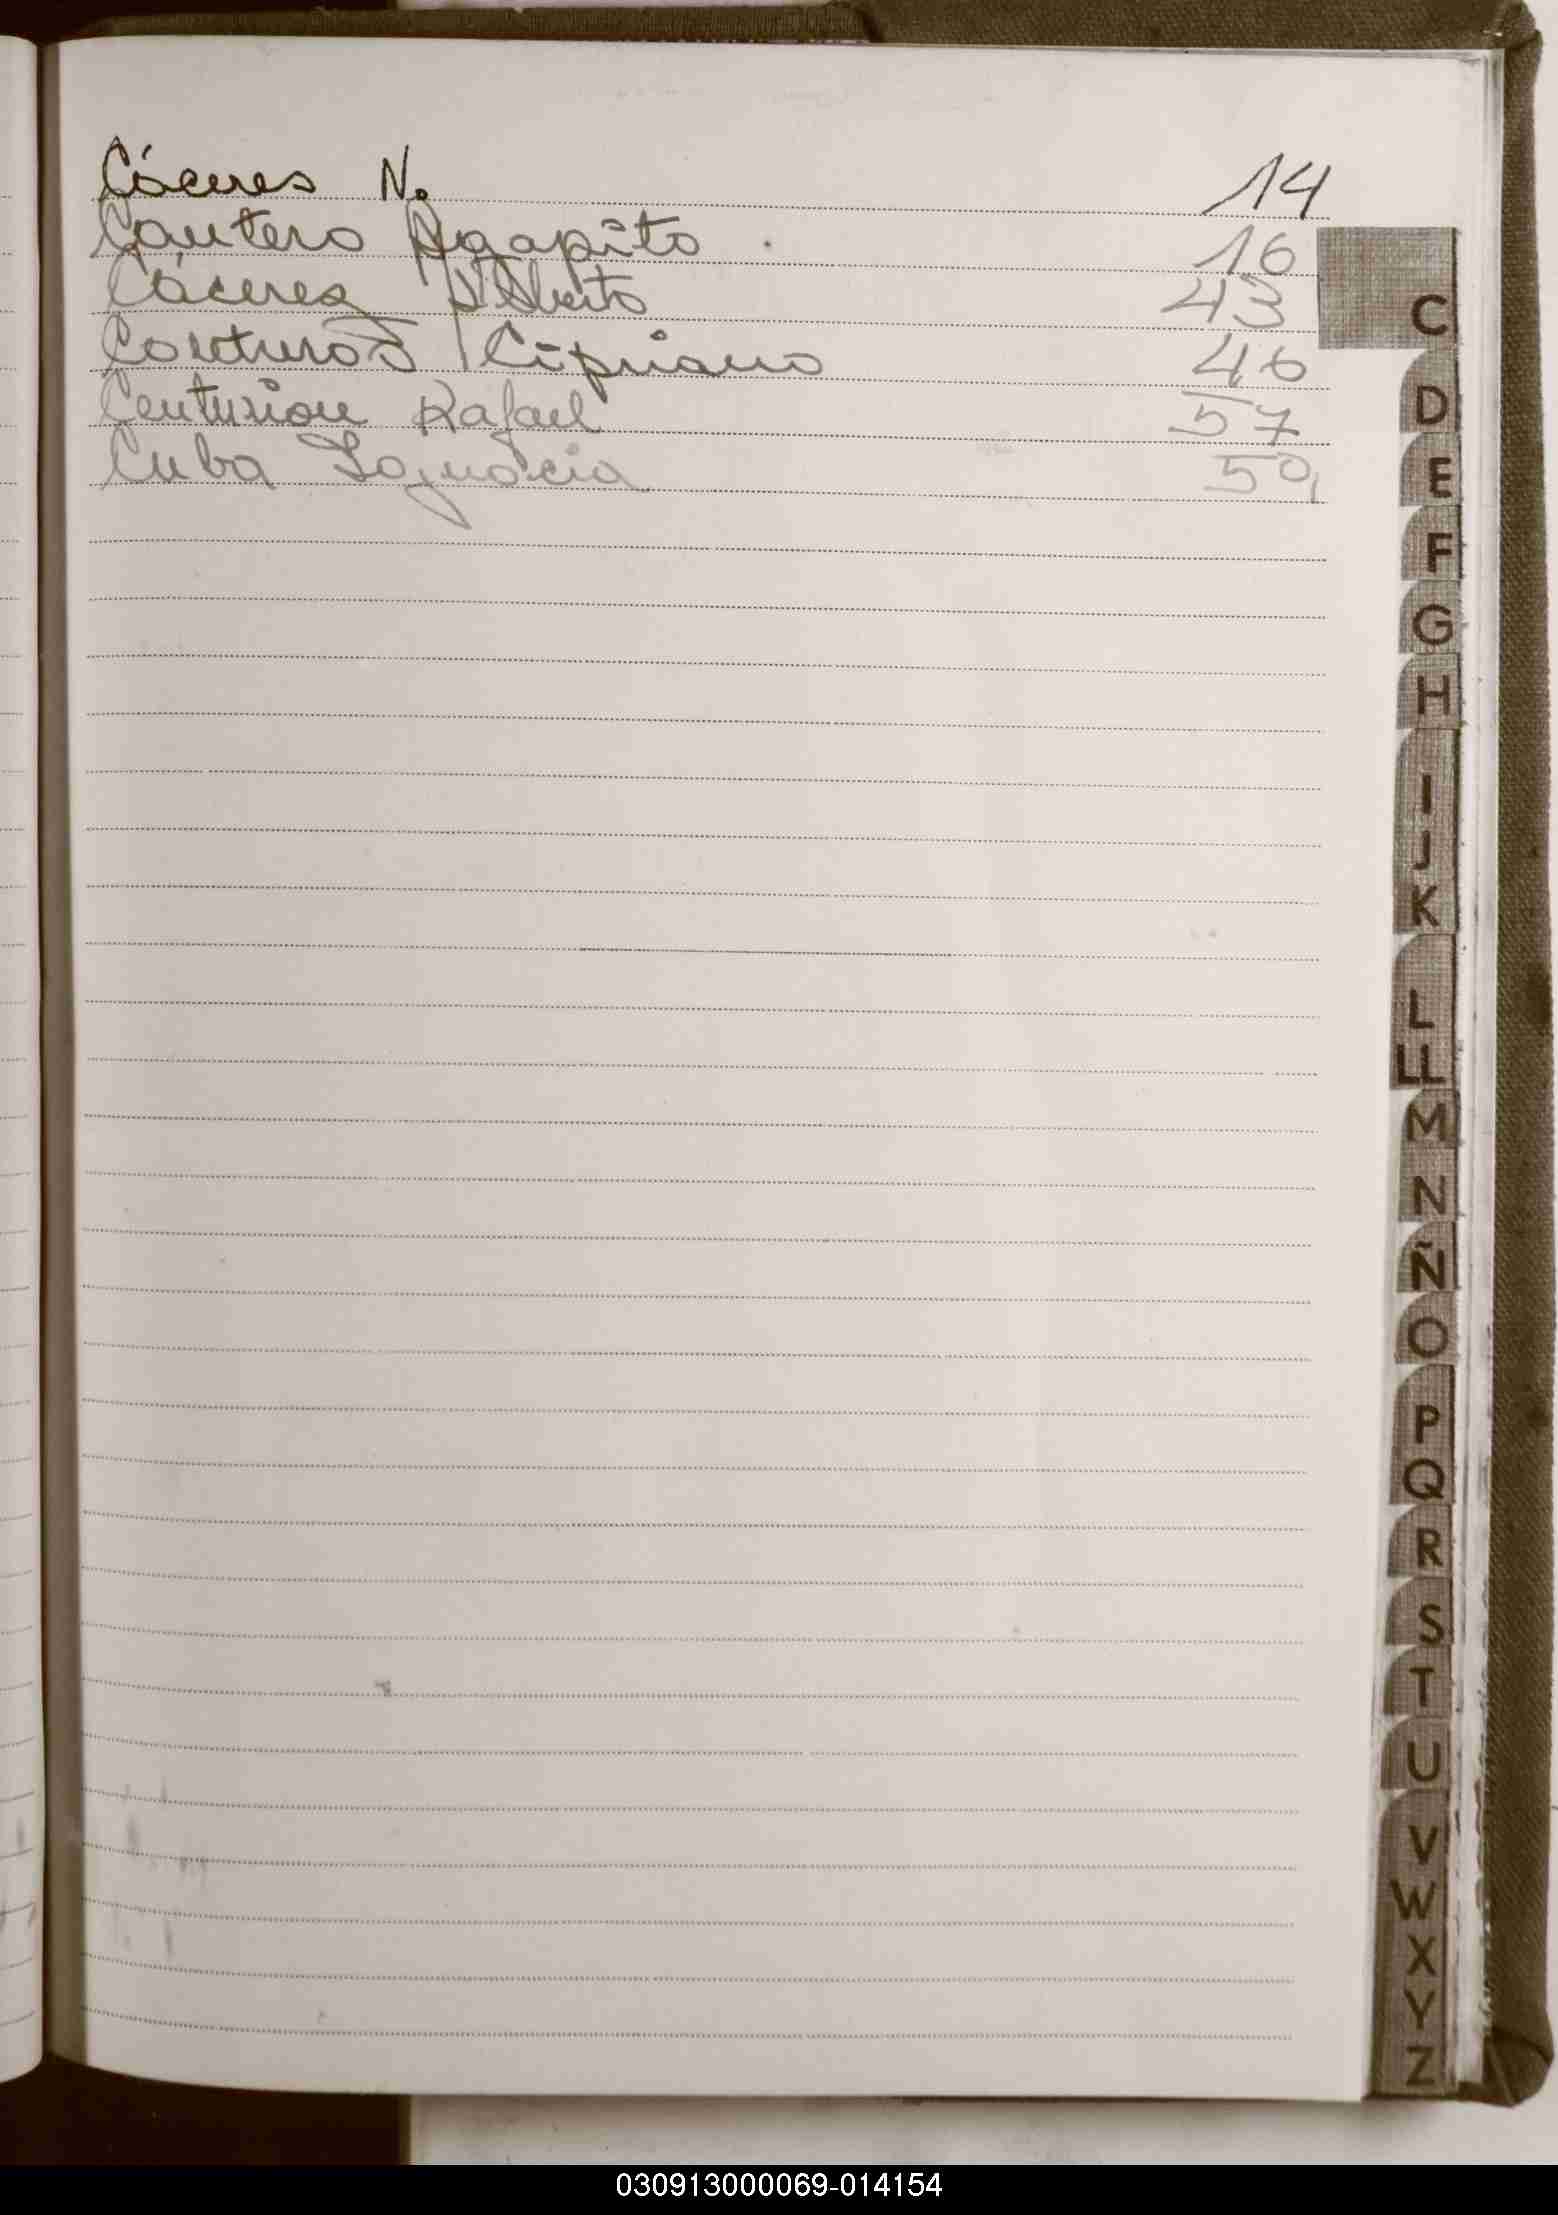 Cáceres N. 14
Cantero Agapito . 16
Cáceres Alberto 43
Cipriano 46
Centurion Rafael 57
Cuba Ignacia 59
C
D
E
F
G
H
I
J
K
L
LL
M
N
Ñ
O
P
Q
R
S
T
U
V
W
X
Y
Z
030913000069-014154